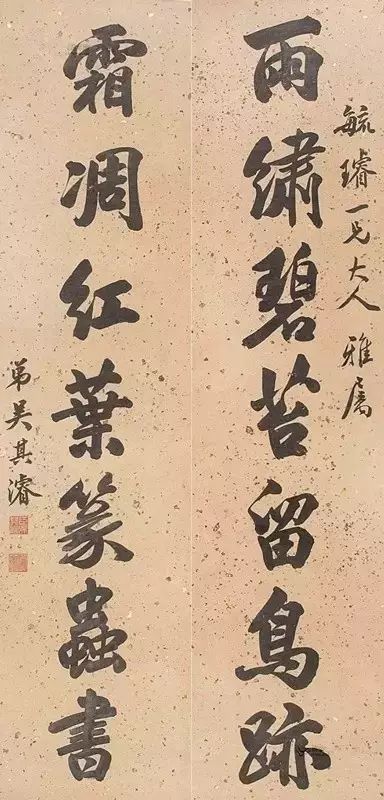 毓璿一兄大人雅属
雨繡碧苔留鳥跡
霜凋紅葉篆蟲書
弟吴其濬